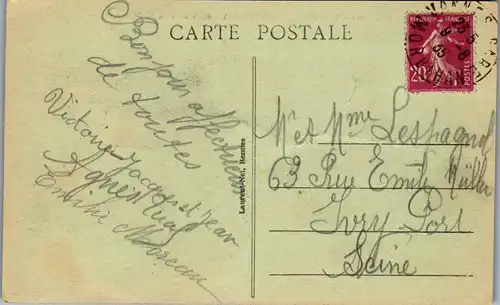 CARTE POSTALE
REPUBLIQUE FRANÇAISE
20
POSTES
VANNES GARE
MORBIHAN
Bonjour affectueux
de toutes
Victoire Jacques et Jean
Agnès
Emilie Moreau
Laurent-Nel, Rennes
M et Mme Lespagnol
63, Rue Emile Müller
Ivry Port
Seine